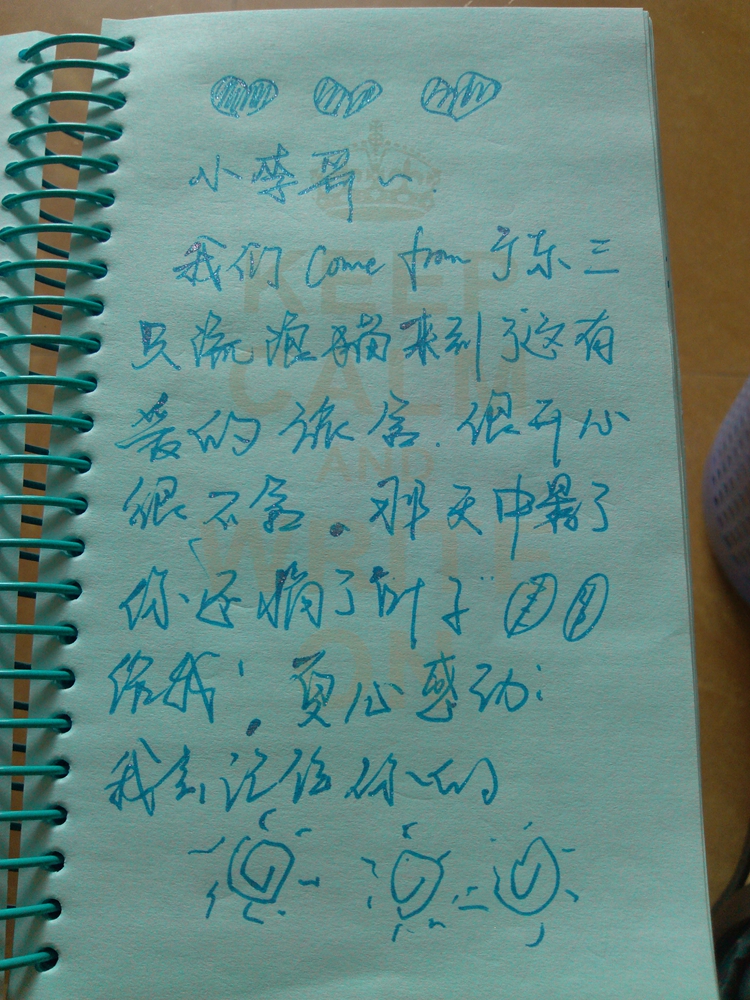 小李哥～.
我们 come from 广东三
只流浪猫来到了这有
爱的旅舍.很开心
很不舍.那天中暑了
你还摘了叶子
给我！真心感动:
我会记住你的
KEEP
CALM
AND
WRITE
ON